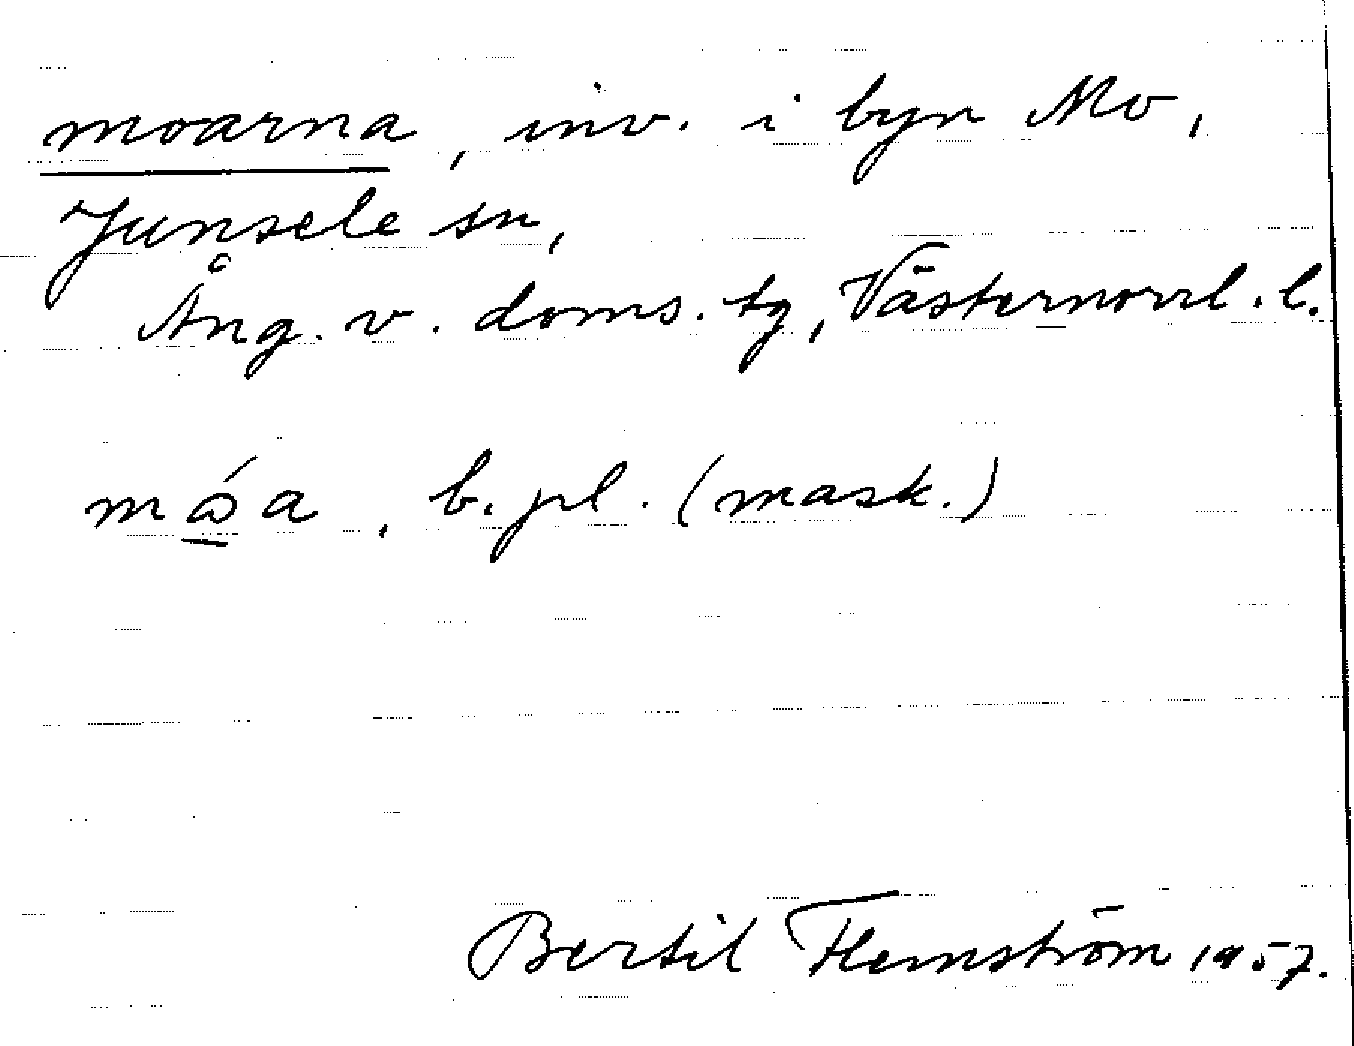 moarna, inv. i byn Mo,
Junsele sn,
Ång. v. doms. tg, Västernorrl. l.
mώa, b. pl. (mask.)
Bertil Flemström 1957.